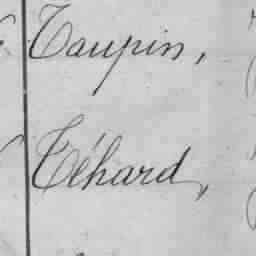 Taupin,
Téhard,